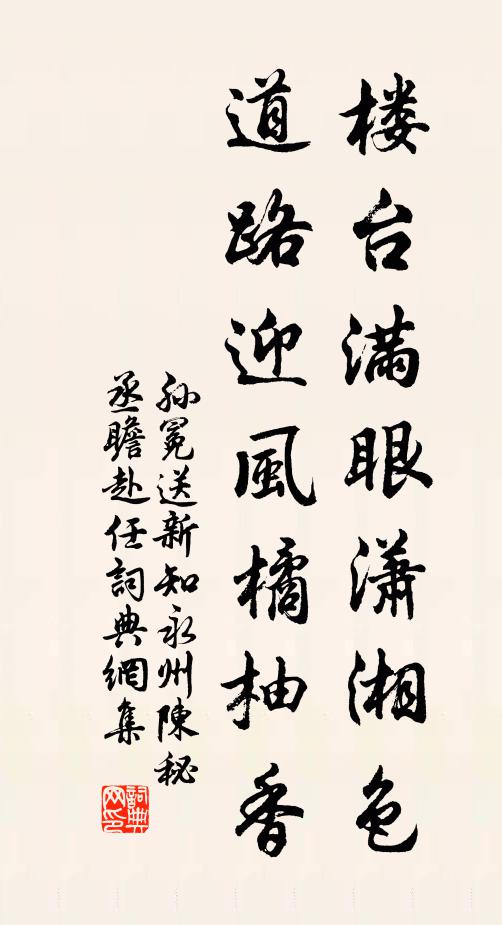 楼台满眼潇湘色
道路迎風橘柚香
孙冕送新知永州陳秘
丞瞻赴任詞典網集
詞典
网印